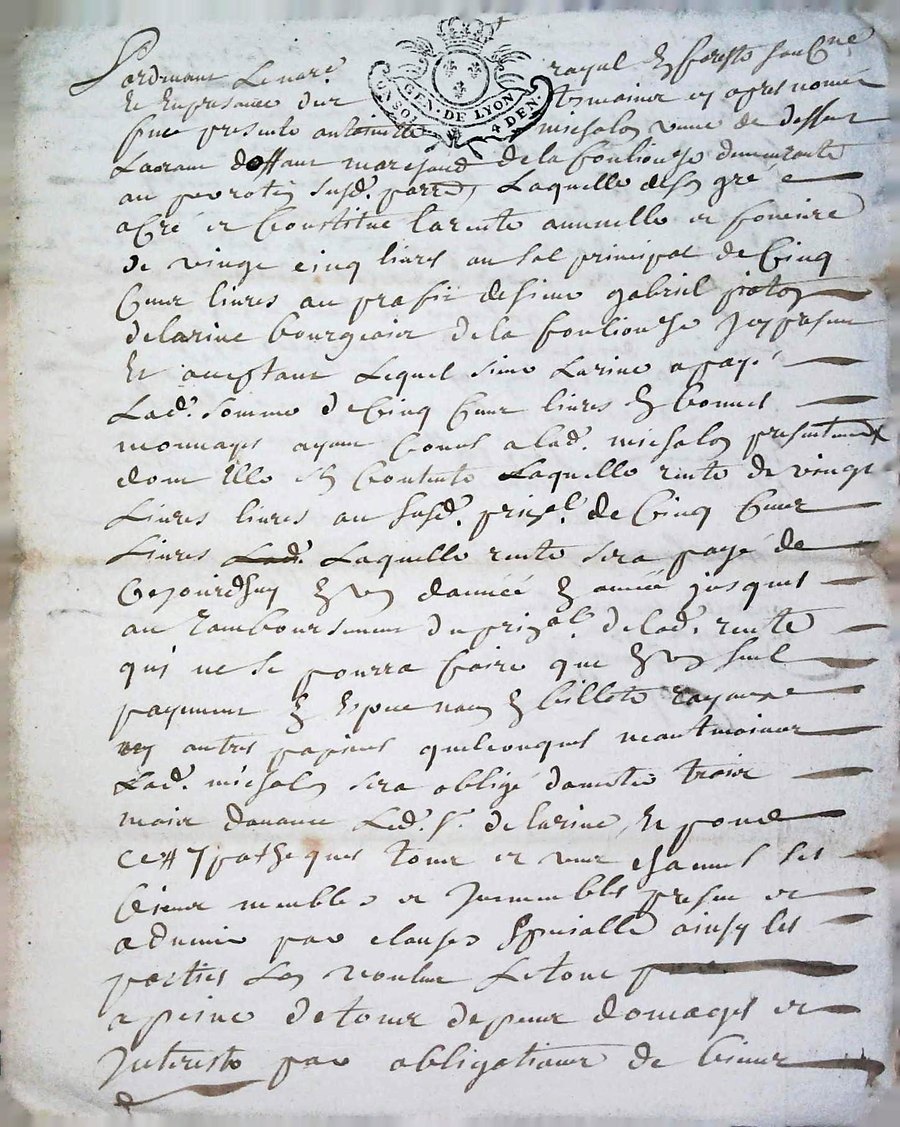 Pardevant Le nore. royal En forests soubne
Et En presance des tesmoins cy apres nomes
fuct presente antoinette michalon veufve de deffunt
GEN. DE LYON
UN SOL 4 DEN.
deffunt marchand de la fouliouze demeurante
au perotin susd. parre, Laquelle de son gré a
a Cré et Constitué la rente annuelle et fonciere
de vingt cinq livres au sol principal de Cinq
Cent livres au profit de sieur gabriel
delarine bourgeois de la fouliouze Icy present
Et aceptant Lequel sieur Larine a payé
Lad. somme de Cinq Cent livres En bonnes
monnoyes ayant Cours a lad. michalon presentement
dont Elle Est Contente Laquelle rente de vingt
Livres livres au susd. prinal. de Cinq Cent
Livres Laquelle rente sera payé de
Cejourdhuy En un dannée En année jusques
au rambourcement du prinal. de lad. rente
qui ne se pourra faire que En un seul
payement En Especes non En billets
ny autres papiers quelconques neantmoins
Lad. michalon sera obligé davertir trois
mois davance Led. sr. de larine, Et pour
ce Ypotheques tous et uns chacuns ses
biens meubles et Immeubles presents et
advenir par clause specialle ainsy les
parties Lon voulu Le tout
a peine de tous depens domages et
Interests par obligations de biens
&